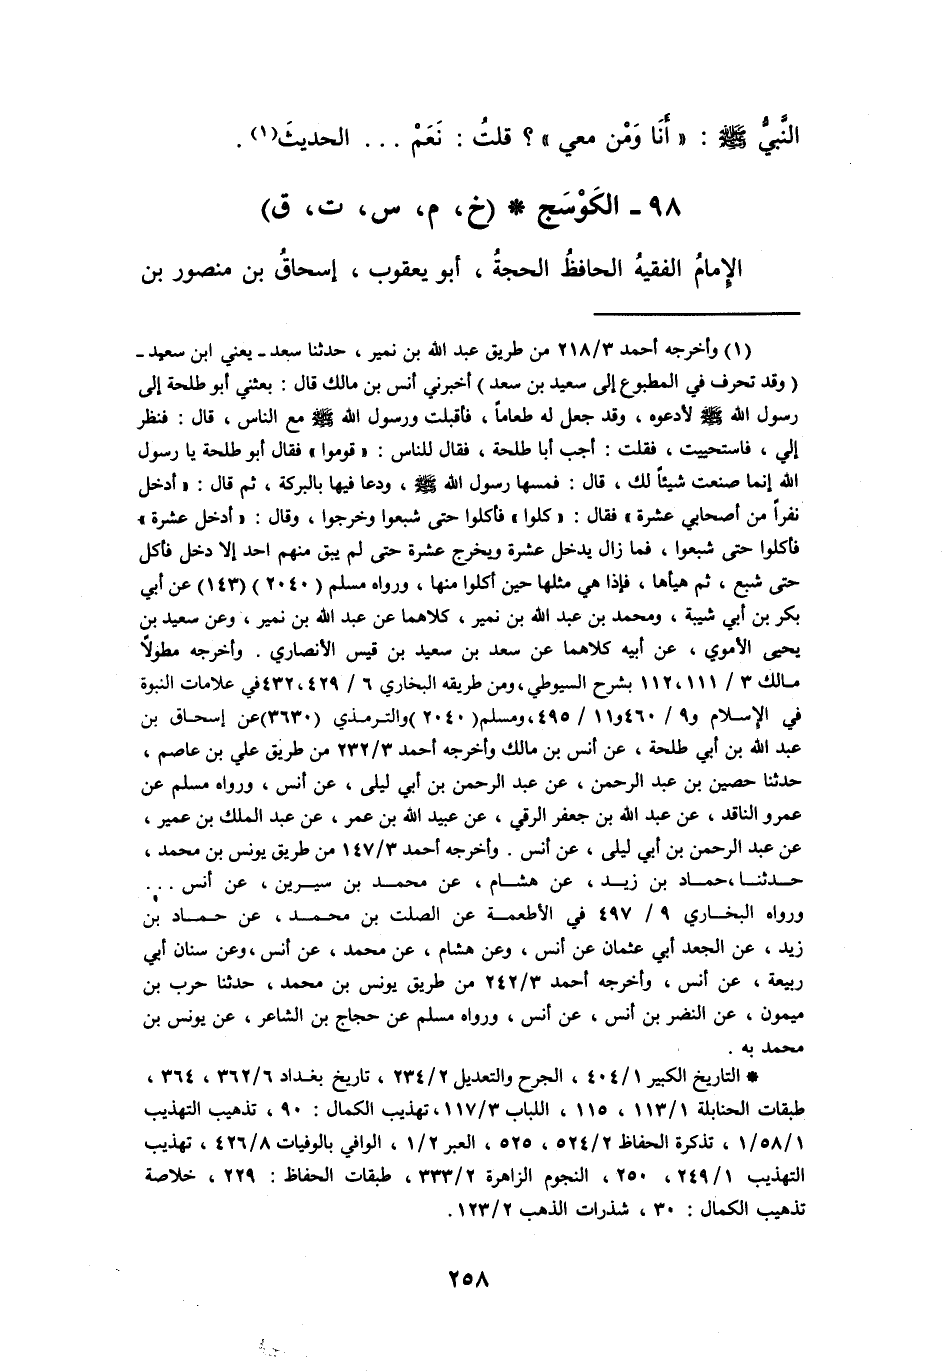 النَّبيُّ ﷺ : « أَنَا وَمْن معي » ؟ قلتُ : نَعَمْ ... الحديثَ(١) .
٩٨ ـ الكَوْسَج * (خ، م، س، ت، ق)
الإِمامُ الفقيهُ الحافظُ الحجةُ ، أبو يعقوب ، إسحاقُ بن منصور بن
(١) وأخرجه أحمد ٢١٨/٣ من طريق عبد الله بن نمير ، حدثنا سعد ـ يعني ابن سعيد ـ
( وقد تحرف في المطبوع إلى سعيد بن سعد ) أخبرني أنس بن مالك قال : بعثني أبو طلحة إلى
رسول الله ﷺ لأدعوه ، وقد جعل له طعاماً ، فأقبلت ورسول الله ﷺ مع الناس ، قال : فنظر
إلي ، فاستحييت ، فقلت : أجب أبا طلحة ، فقال للناس : « قوموا » فقال أبو طلحة يا رسول
الله إنما صنعت شيئاً لك ، قال : فمسها رسول الله ﷺ ، ودعا فيها بالبركة ، ثم قال : « أدخل
نفراً من أصحابي عشرة » فقال : « كلوا » فأكلوا حتى شبعوا وخرجوا ، وقال : « أدخل عشرة »
فأكلوا حتى شبعوا ، فما زال يدخل عشرة ويخرج عشرة حتى لم يبق منهم احد إلا دخل فأكل
حتى شبع ، ثم هيأها ، فإذا هي مثلها حين أكلوا منها ، ورواه مسلم ( ٢٠٤٠ ) (١٤٣) عن أبي
بكر بن أبي شيبة ، ومحمد بن عبد الله بن نمير ، كلاهما عن عبد الله بن نمير ، وعن سعيد بن
يحيى الأموي ، عن أبيه كلاهما عن سعد بن سعيد بن قيس الأنصاري . وأخرجه مطولاً
مالك ٣ / ١١١ ،١١٢ بشرح السيوطي ،ومن طريقه البخاري ٦ / ٤٢٩ ،٤٣٢في علامات النبوة
في الإسلام و٩ / ٤٦٠و١١ / ٤٩٥،ومسلم( ٢٠٤٠ )والترمذي (٣٦٣٠)عن إسحاق بن
عبد الله بن أبي طلحة ، عن أنس بن مالك وأخرجه أحمد ٢٣٢/٣ من طريق علي بن عاصم ،
حدثنا حصين بن عبد الرحمن ، عن عبد الرحمن بن أبي ليلى ، عن أنس ، ورواه مسلم عن
عمرو الناقد ، عن عبد الله بن جعفر الرقي ، عن عبيد الله بن عمر ، عن عبد الملك بن عمير ،
عن عبد الرحمن بن أبي ليلى ، عن أنس . وأخرجه أحمد ١٤٧/٣ من طريق يونس بن محمد ،
حدثنا ،حماد بن زيد ، عن هشام ، عن محمد بن سيرين ، عن أنس ...
ورواه البخاري ٩ / ٤٩٧ في الأطعمة عن الصلت بن محمد ، عن حماد بن
زيد ، عن الجعد أبي عثمان عن أنس ، وعن هشام ، عن محمد ، عن أنس ،وعن سنان أبي
ربيعة ، عن أنس ، وأخرجه أحمد ٢٤٢/٣ من طريق يونس بن محمد ، حدثنا حرب بن
ميمون ، عن النضر بن أنس ، عن أنس ، ورواه مسلم عن حجاج بن الشاعر ، عن يونس بن
محمد به .
* التاريخ الكبير ٤٠٤/١ ، الجرح والتعديل ٢٣٤/٢ ، تاريخ بغداد ٣٦٢/٦ ، ٣٦٤ ،
طبقات الحنابلة ١١٣/١ ، ١١٥ ، اللباب ١١٧/٣ ،تهذيب الكمال : ٩٠ ، تذهيب التهذيب
١/٥٨/١ ، تذكرة الحفاظ ٥٢٤/٢ ، ٥٢٥ ، العبر ١/٢ ، الوافي بالوفيات ٤٢٦/٨ ، تهذيب
التهذيب ٢٤٩/١ ، ٢٥٠ ، النجوم الزاهرة ٣٣٣/٢ ، طبقات الحفاظ : ٢٢٩ ، خلاصة
تذهيب الكمال : ٣٠ ، شذرات الذهب ١٢٣/٢ .
٢٥٨